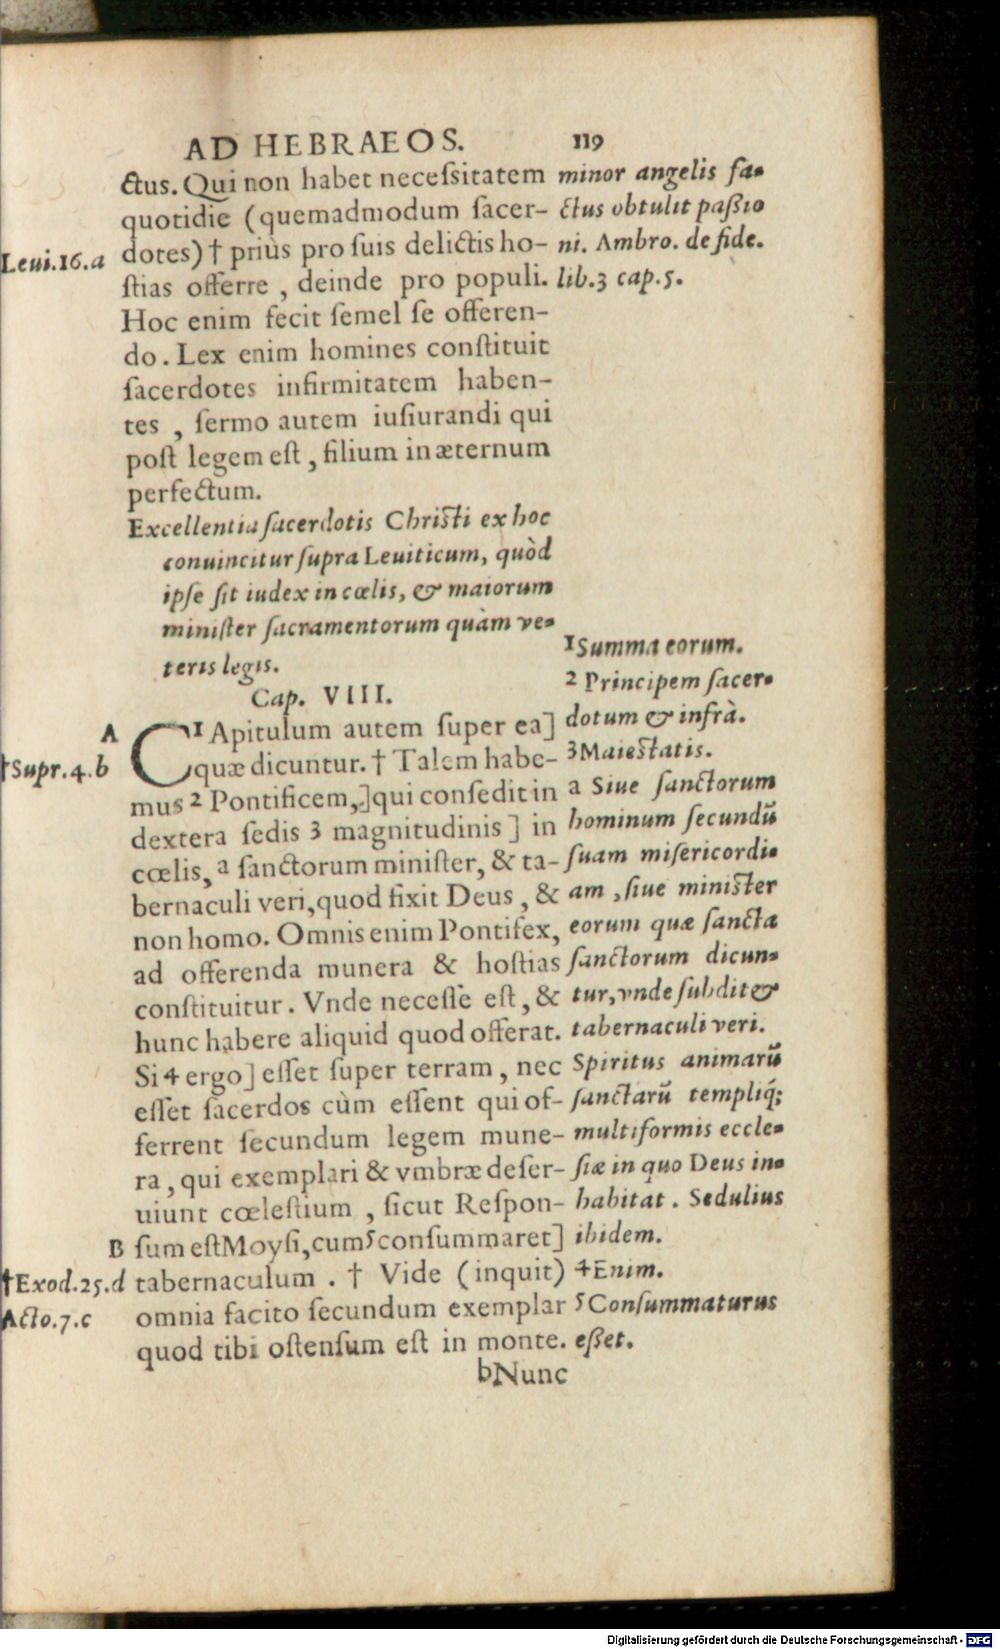 AD HEBRAEOS. 119
ctus. Qui non habet necesſitatem
quotidie (quemadmodum ſacer-
dotes) † priùs pro ſuis delictis ho-
ſtias offerre , deinde pro populi.
Hoc enim fecit ſemel ſe offeren-
do. Lex enim homines conſtituit
ſacerdotes infirmitatem haben-
tes , ſermo autem iuſiurandi qui
poſt legem eſt , filium in æternum
perfectum.
Leui.16.a
minor angelis fa-
ctus obtulit paßio
ni. Ambro. de fide.
lib.3 cap.5.
Excellentia ſacerdotis Chriſti ex hoc
conuincitur ſupra Leuiticum, quòd
ipſe ſit iudex in cœlis, & maiorum
miniſter ſacramentorum quàm ve-
teris legis.
Cap. VIII.
A
C1Apitulum autem ſuper ea]
quæ dicuntur. † Talem habe-
mus 2 Pontificem,] qui conſedit in
dextera ſedis 3 magnitudinis ] in
cœlis, a ſanctorum miniſter, & ta-
bernaculi veri, quod fixit Deus , &
non homo. Omnis enim Pontifex,
ad offerenda munera & hoſtias
conſtituitur. Vnde neceſſe eſt, &
hunc habere aliquid quod offerat.
Si 4 ergo] eſſet ſuper terram , nec
eſſet ſacerdos cùm eſſent qui of-
ferrent ſecundum legem mune-
ra , qui exemplari & vmbræ deſer-
uiunt cœleſtium , ſicut Reſpon-
B ſum eſt Moyſi, cum 5 conſummaret]
tabernaculum . † Vide (inquit)
omnia facito ſecundum exemplar
quod tibi oſtenſum eſt in monte.
bNunc
†Supr.4.b
†Exod.25.d
Acto.7.c
1 Summa eorum.
2 Principem ſacer-
dotum & infrà.
3 Maieſtatis.
a Siue ſanctorum
hominum ſecundũ
ſuam miſericordi-
am , ſiue miniſter
eorum quæ ſancta
ſanctorum dicun-
tur, vnde ſubdit &
tabernaculi veri.
Spiritus animarũ
ſanctarũ templiq́;
multiformis eccle-
ſiæ in quo Deus in-
habitat . Sedulius
ibidem.
4 Enim.
5 Conſummaturus
eßet.
Digitalisierung gefördert durch die Deutsche Forschungsgemeinschaft - DFG